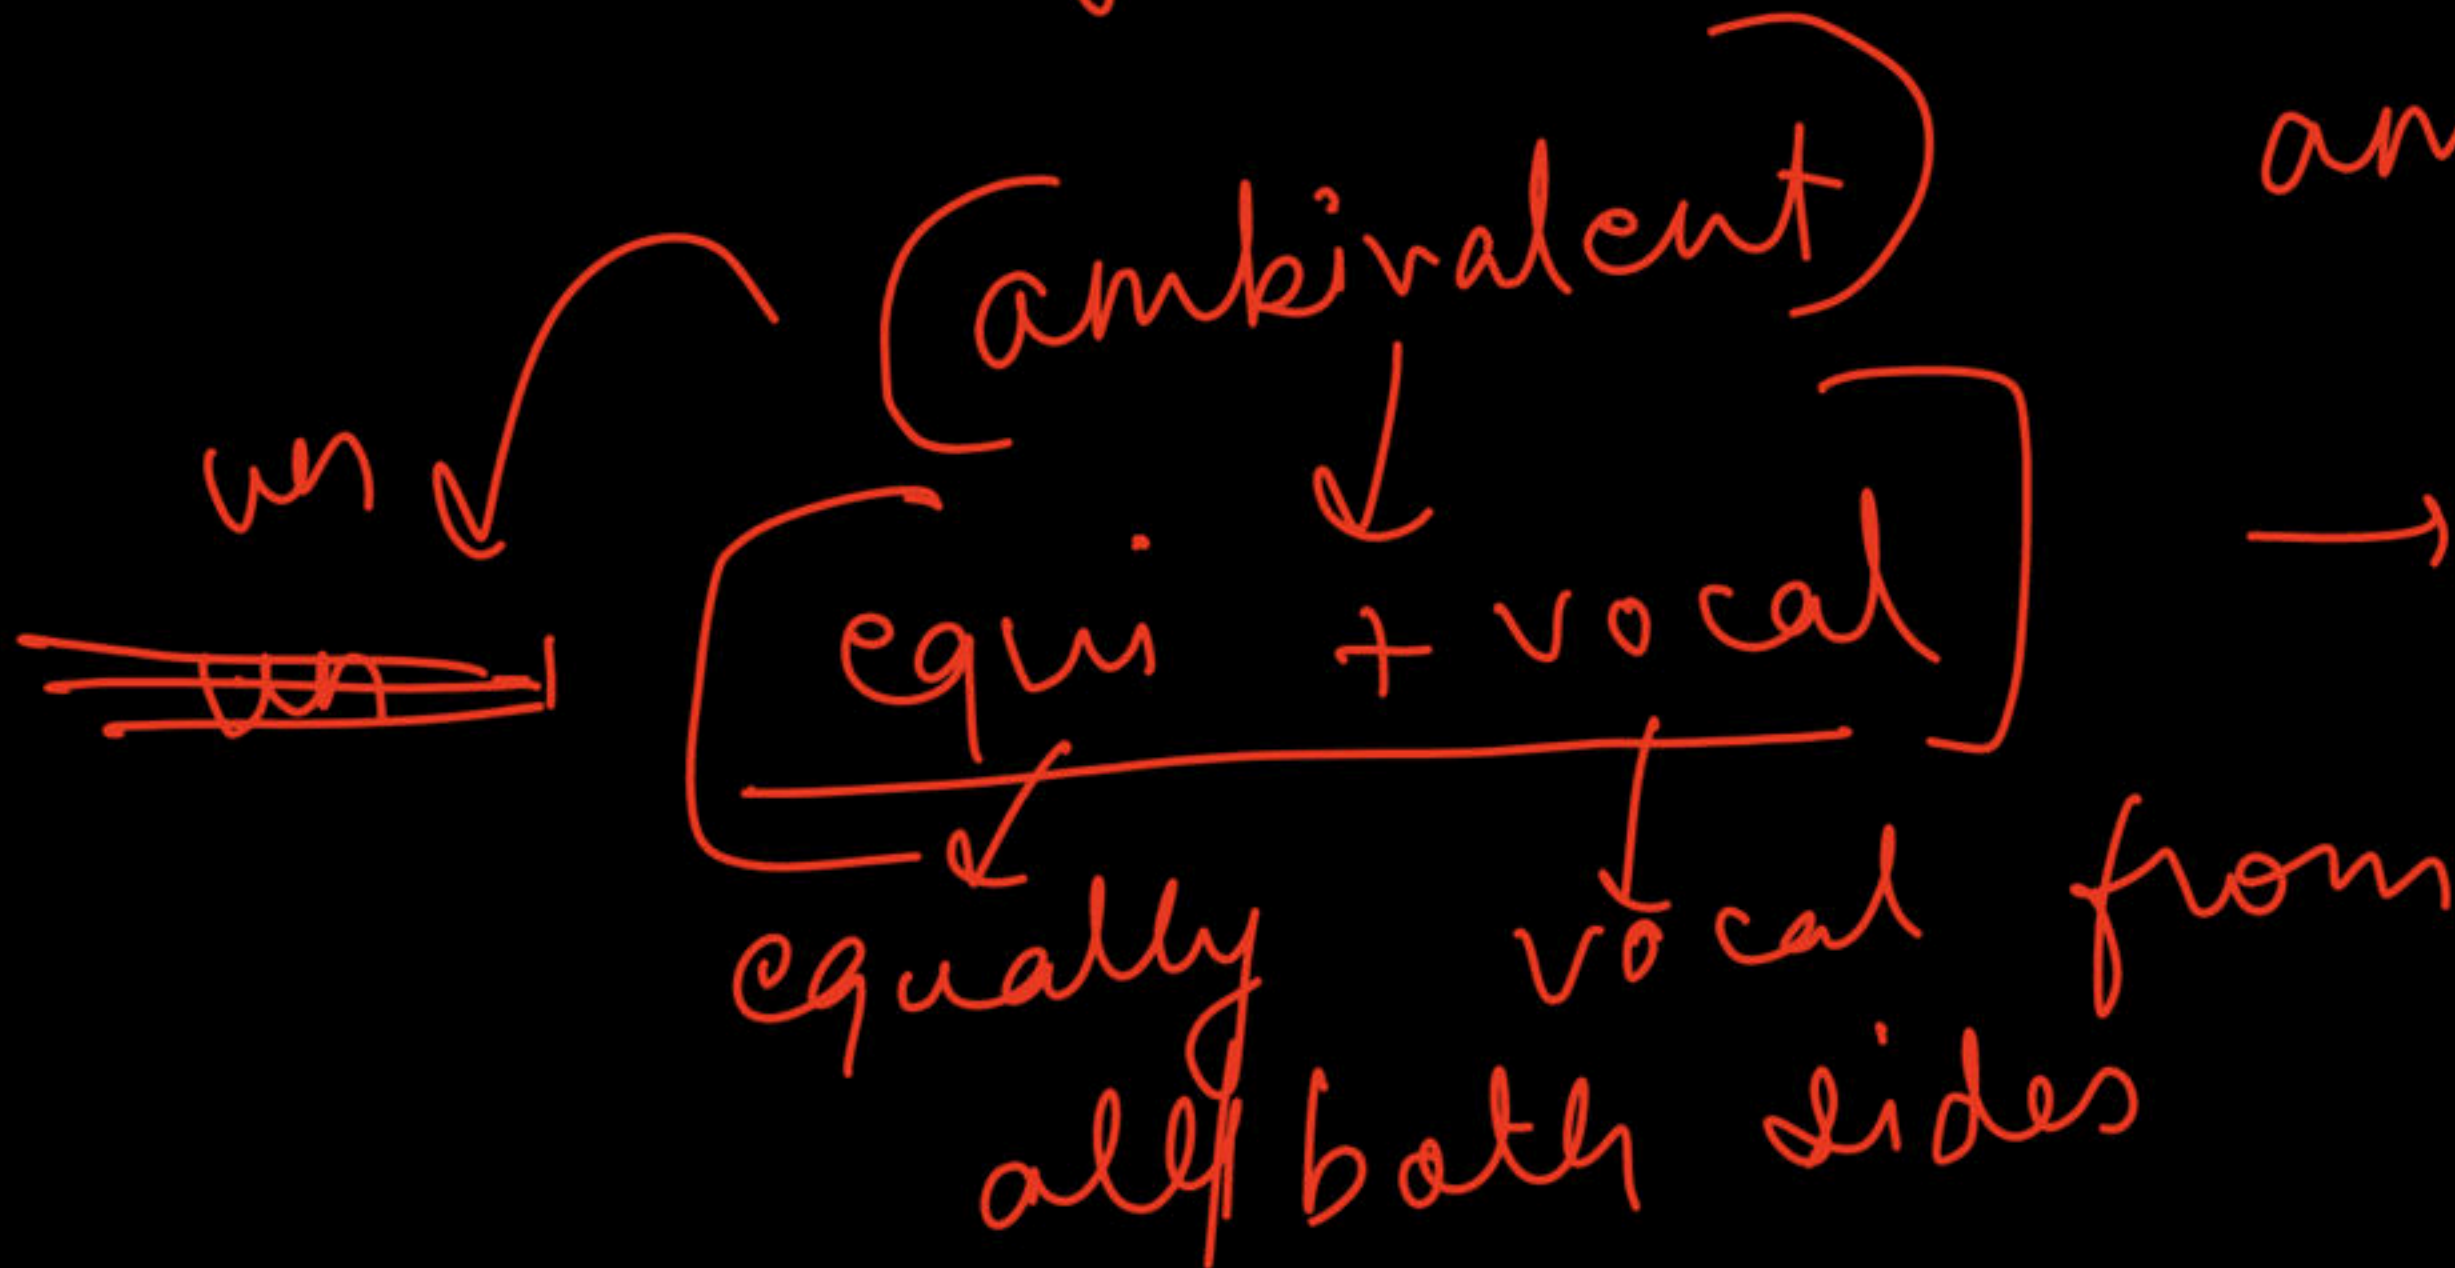 (ambivalent)
un
[equi + vocal] →
un
equally vocal from
all/both sides